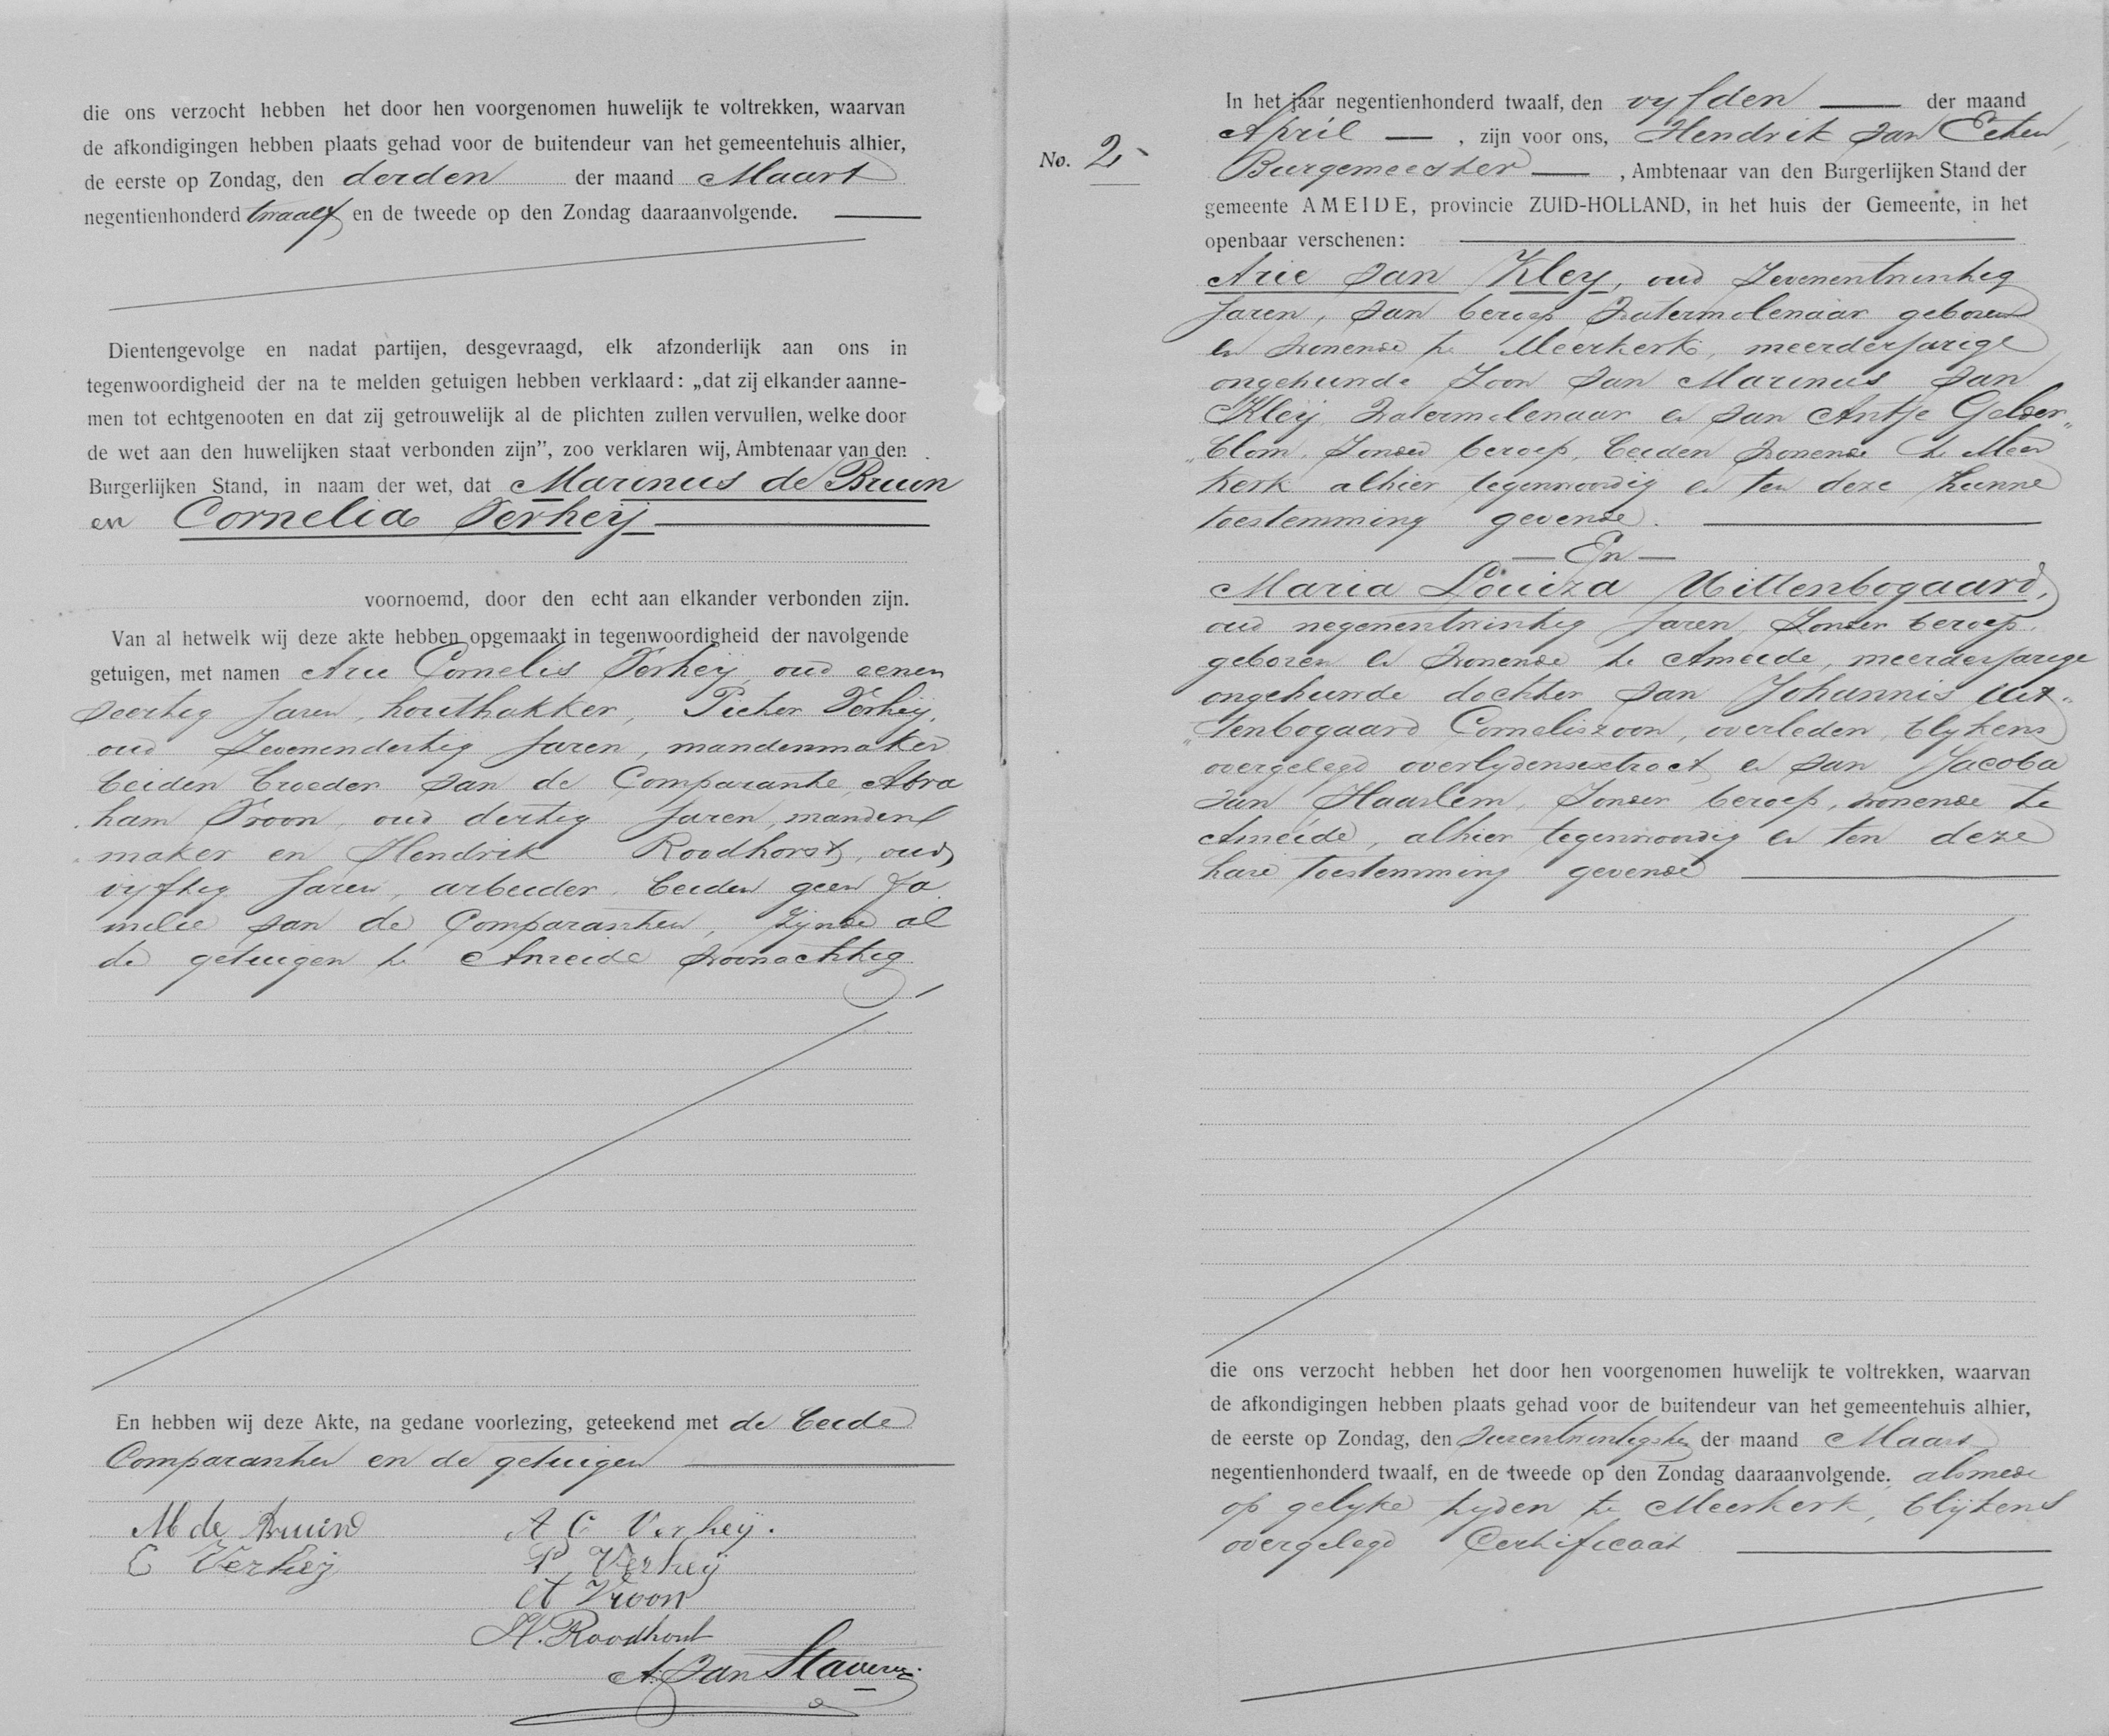 die ons verzocht hebben het door hen voorgenomen huwelijk te voltrekken, waarvan
de afkondigingen hebben plaats gehad voor de buitendeur van het gemeentehuis alhier,
de eerste op Zondag, den derden der maand Maart
negentienhonderd twaalf en de tweede op den Zondag daaraanvolgende.
Dientengevolge en nadat partijen, desgevraagd, elk afzonderlijk aan ons in
tegenwoordigheid der na te melden getuigen hebben verklaard: „dat zij elkander aanne-
men tot echtgenooten en dat zij getrouwelijk al de plichten zullen vervullen, welke door
de wet aan den huwelijken staat verbonden zijn", zoo verklaren wij, Ambtenaar van den
Burgerlijken Stand, in naam der wet, dat Marinus de Bruin
en Cornelia Verheij
voornoemd, door den echt aan elkander verbonden zijn.
Van al hetwelk wij deze akte hebben opgemaakt in tegenwoordigheid der navolgende
getuigen, met namen Arie Cornelis Verheij, oud eenen
veertig jaren, houthakker, Pieter Verheij,
oud zevenendertig jaren, mandenmaker
beiden broeder van de Comparante, Abra
ham Vroon, oud dertig jaren, manden
maker en Hendrik Roodhorst, oud
vijftig jaren, arbeider, beiden geen fa
milie van de Comparanten, zijnde al
de getuigen te Ameide woonachtig
En hebben wij deze Akte, na gedane voorlezing, geteekend met de beide
Comparanten en de getuigen
M de Bruin A C Verheij.
C Verheij P Verheij
A Vroon
H. Roodhorst
A. van Staveren
No. 2
In het jaar negentienhonderd twaalf, den vyfden der maand
April, zijn voor ons, Hendrik van Eeten,
Burgemeester, Ambtenaar van den Burgerlijken Stand der
gemeente AMEIDE, provincie ZUID-HOLLAND, in het huis der Gemeente, in het
openbaar verschenen:
Arie van Kleij, oud zevenentwintig
jaren, van beroep watermolenaar geboren
en wonende te Meerkerk, meerderjarige
ongehuwde zoon van Marinus van
Kleij, watermolenaar en van Antje Gelder„
„blom, zonder beroep, beiden wonende te Meer
kerk alhier tegenwoordig en ten deze hunne
toestemming gevende.
En
Maria Louiza Uittenbogaard,
oud negenentwintig jaren, zonder beroep,
geboren en wonende te Ameide, meerderjarige
ongehuwde dochter van Johannis Uit„
„tenbogaard Corneliszoon, overleden, blykens
overgelegd overlydensextract en van Jacoba
van Haarlem, zonder beroep, wonende te
Ameide, alhier tegenwoordig en ten deze
hare toestemming gevende
die ons verzocht hebben het door hen voorgenomen huwelijk te voltrekken, waarvan
de afkondigingen hebben plaats gehad voor de buitendeur van het gemeentehuis alhier,
de eerste op Zondag, den der maand Maart
negentienhonderd twaalf, en de tweede op den Zondag daaraanvolgende, alsmede
op gelyke tyden te Meerkerk, blijkens
overgelegd Certificaat